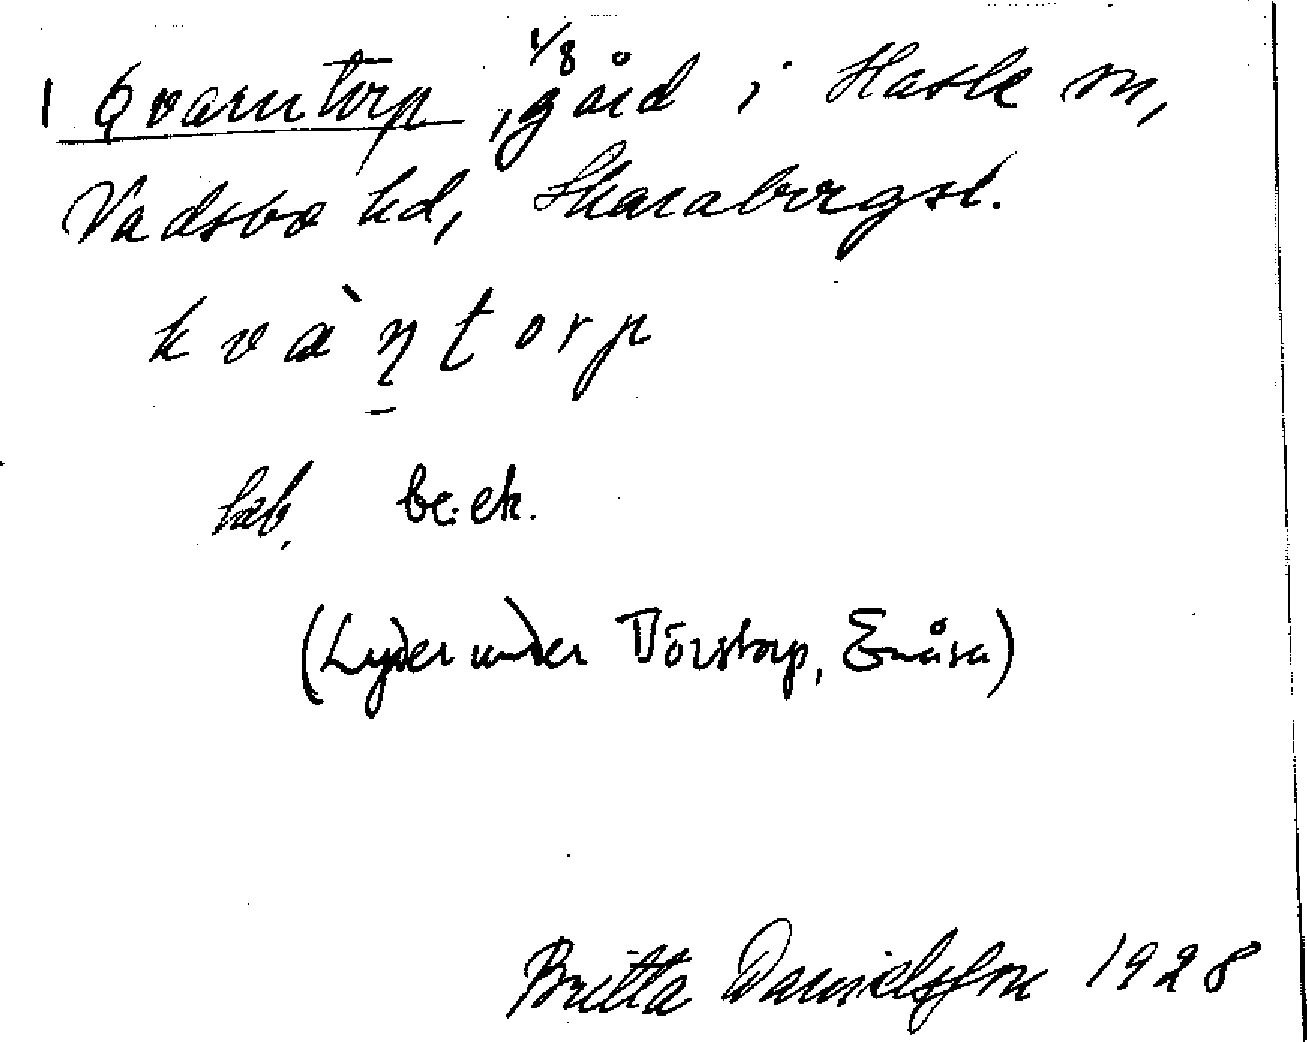 1 Qvarntorp, 1/8 gård i Hasle sn,
Vadsbo hd, Skarabergsl.
kvàṇtorp
bæb. be:ek.
(Lyder under Börstorp, Enåsa)
Britta Danielsson 1928